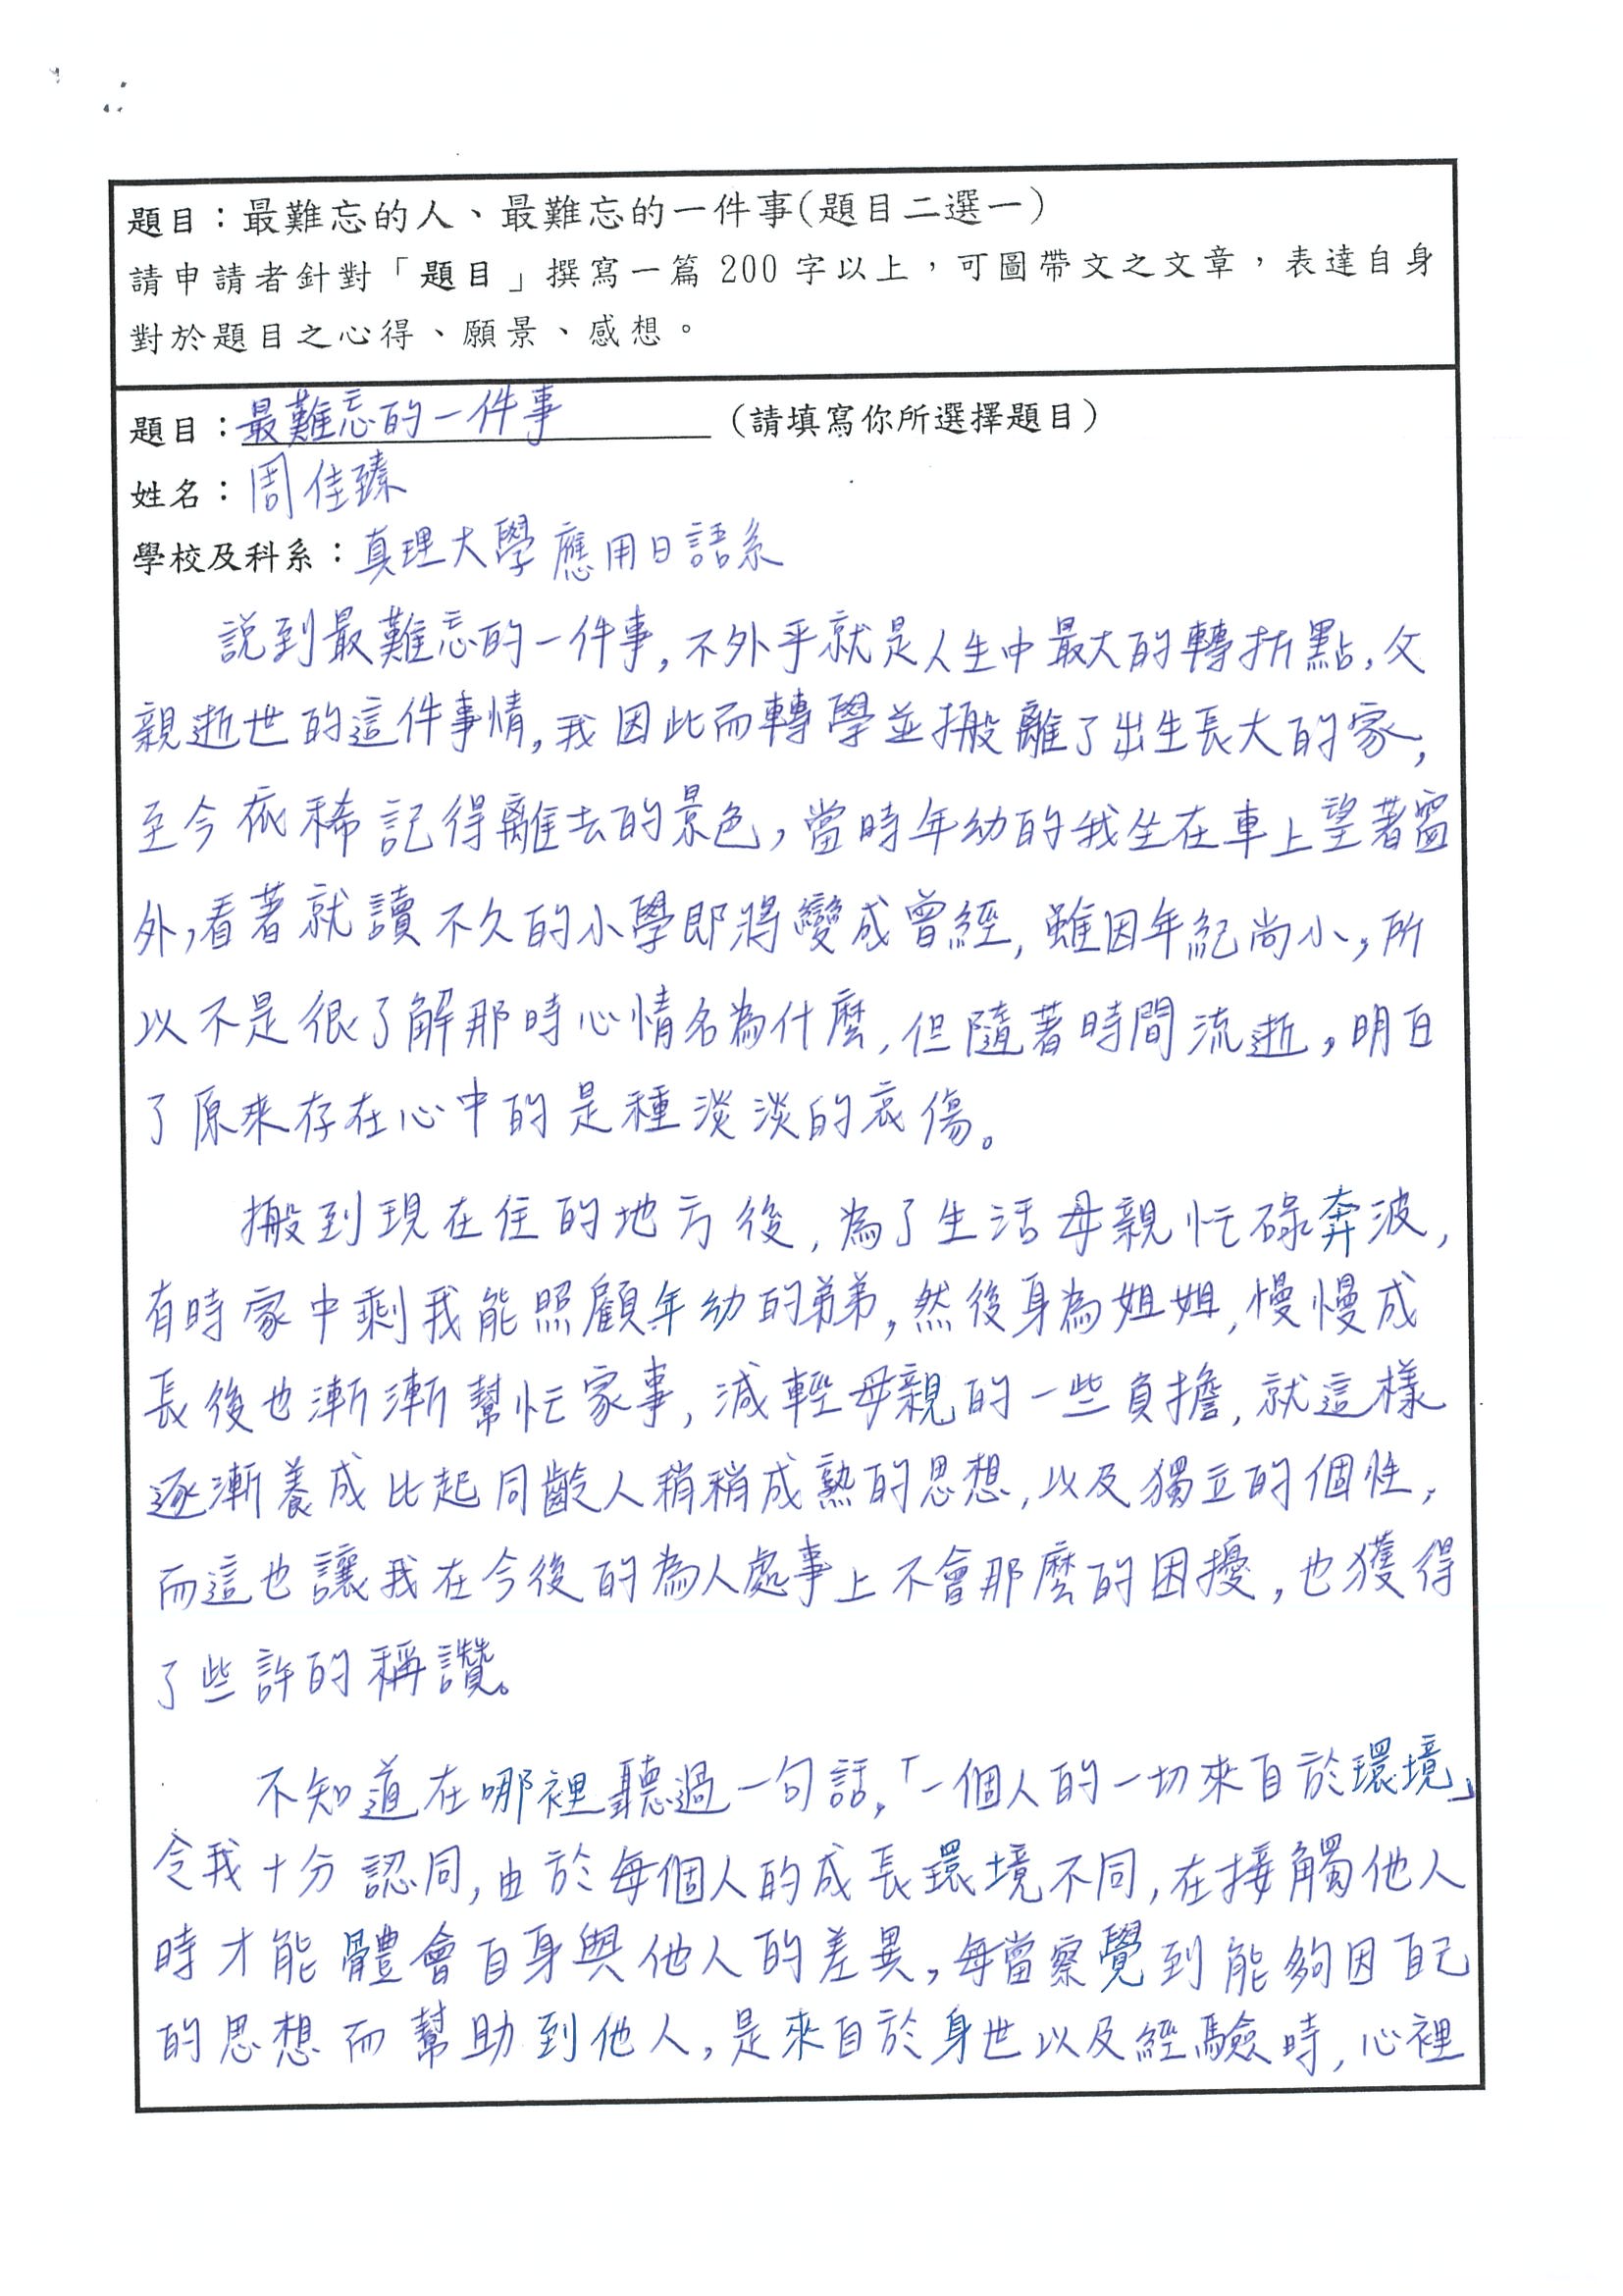 題目：最難忘的人、最難忘的一件事(題目二選一)
請申請者針對「題目」撰寫一篇 200 字以上，可圖帶文之文章，表達自身
對於題目之心得、願景、感想。
題目：最難忘的一件事（請填寫你所選擇題目）
姓名：周佳臻
學校及科系：真理大學應用日語系
說到最難忘的一件事,不外乎就是人生中最大的轉折點,父
親逝世的這件事情,我因此而轉學並搬離了出生長大的家,
至今依稀記得離去的景色,當時年幼的我坐在車上望著窗
外,看著就讀不久的小學即將變成曾經,雖因年紀尚小,所
以不是很了解那時心情名為什麼,但隨著時間流逝,明白
了原來存在心中的是種淡淡的哀傷。
搬到現在住的地方後,為了生活母親忙碌奔波,
有時家中剩我能照顧年幼的弟弟,然後身為姐姐,慢慢成
長後也漸漸幫忙家事,減輕母親的一些負擔,就這樣
逐漸養成比起同齡人稍稍成熟的思想,以及獨立的個性,
而這也讓我在今後的為人處事上不會那麼的困擾,也獲得
了些許的稱讚。
不知道在哪裡聽過一句話,「一個人的一切來自於環境」
令我十分認同,由於每個人的成長環境不同,在接觸他人
時才能體會自身與他人的差異,每當察覺到能夠因自己
的思想而幫助到他人,是來自於身世以及經驗時,心裡